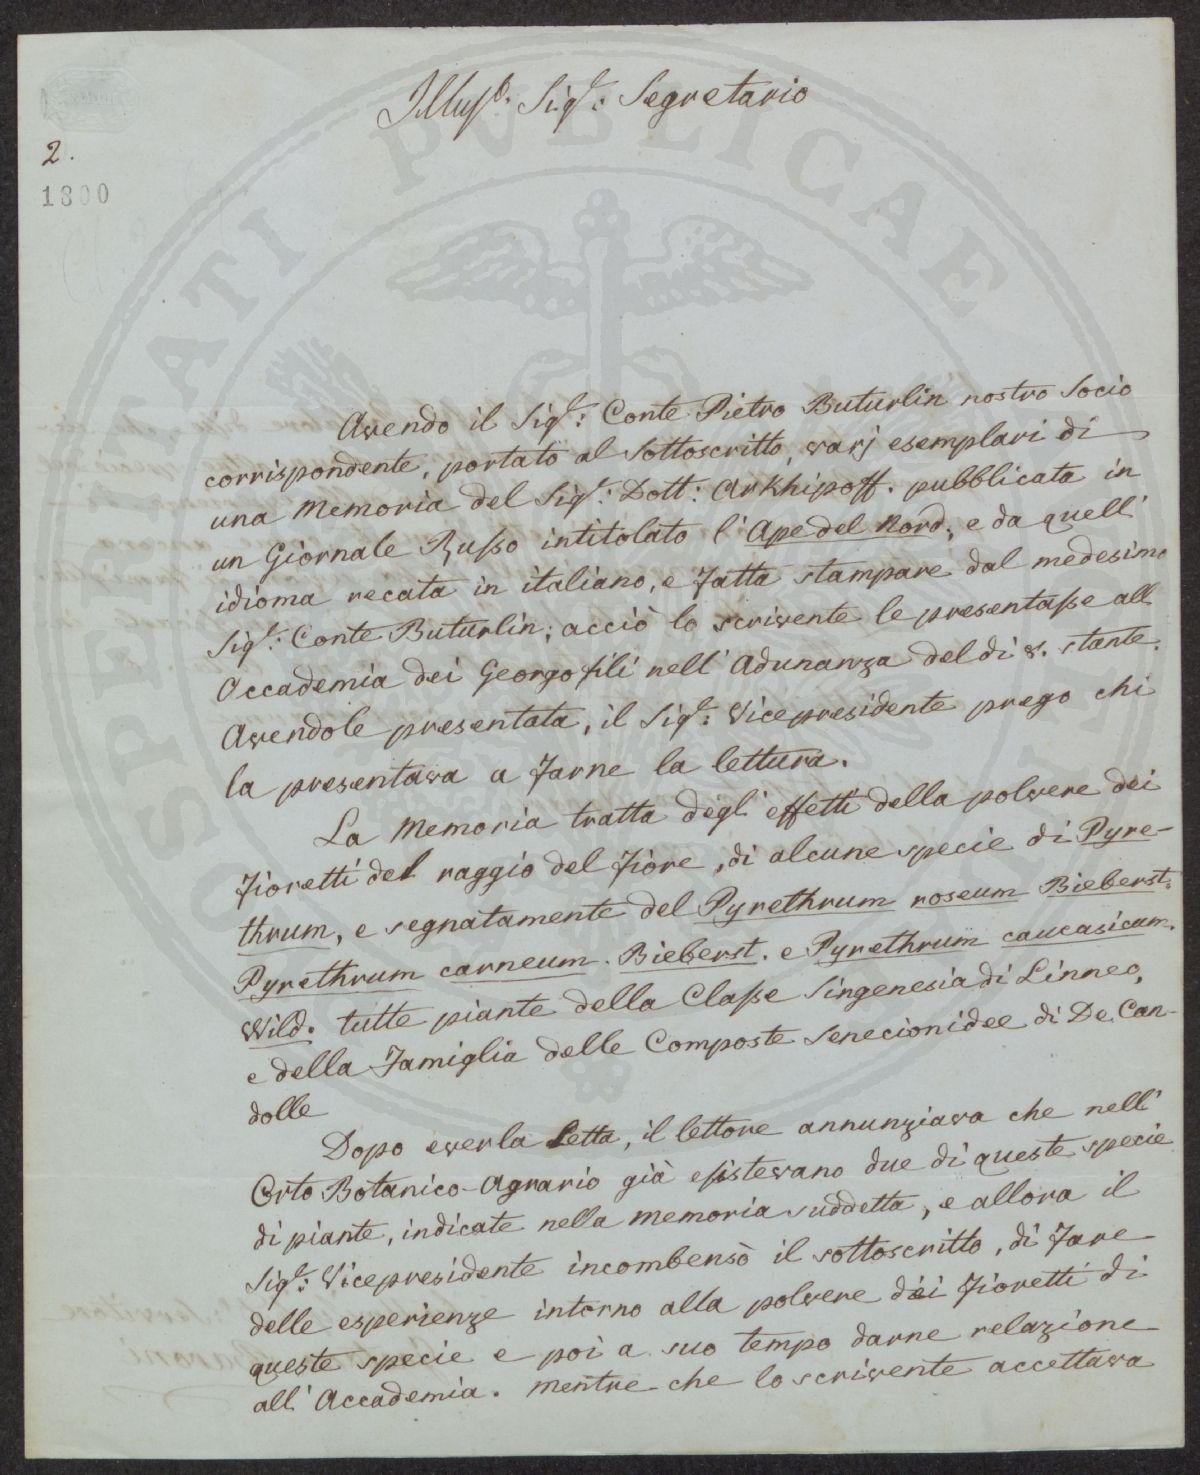 Illus.º Sig.ʳ: Segretario
2.
1800
Avendo il Sig.ʳ: Conte Pietro Buturlin nostro Socio
corrispondente, portato al Sottoscritto, varj esemplari di
una Memoria del Sig.ʳ: Dott: Arkhipoff. pubblicata in
un Giornale Russo intitolato l'Ape del Nord, e da quell'
idioma recata in italiano, e fatta stampare dal medesimo
Sig.ʳ: Conte Buturlin; acciò lo scrivente le presentasse all
Accademia dei Georgofili nell'Adunanza del di 8. stante.
Avendole presentata, il Sig.ʳ: Vicepresidente prego chi
la presentava a farne la lettura.
La Memoria tratta degl'effetti della polvere dei
fioretti del raggio del fiore, di alcune specie di Pyre-
thrum, e segnatamente del Pyrethrum roseum Bieberst.
Pyrethrum carneum. Bieberst. e Pyrethrum caucasicum.
Wild. tutte piante della Classe Singenesia di Linneo,
e della Famiglia delle Composte Senecionidee di De Can-
dolle
Dopo averla Letta, il lettore annunziava che nell'
Orto Botanico-Agrario già esistevano due di queste specie
di piante, indicate nella memoria suddetta, e allora il
Sig.ʳ: Vicepresidente incombensò il sottoscritto, di fare
delle esperienze intorno alla polvere dei fioretti di
queste specie e poi a suo tempo darne relazione
all'Accademia. Mentre che lo scrivente accettava
SPERITATI PVBLICAE